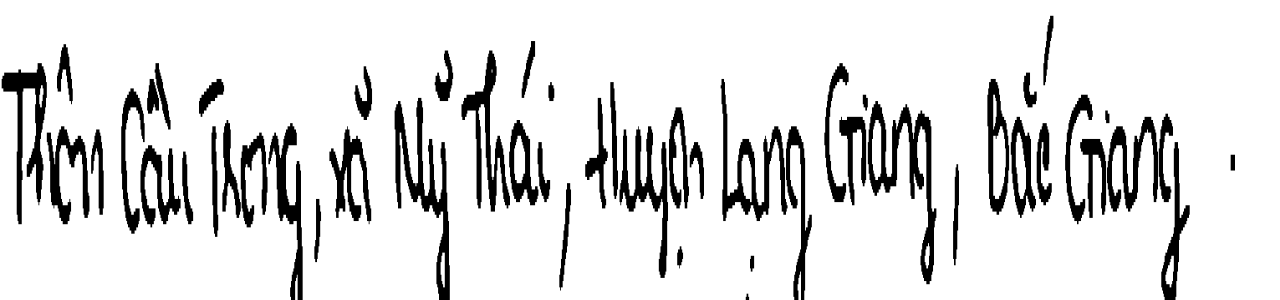 Thôn Cầu Trong, xã Mỹ Thái, Huyện Lạng Giang, Bắc Giang.